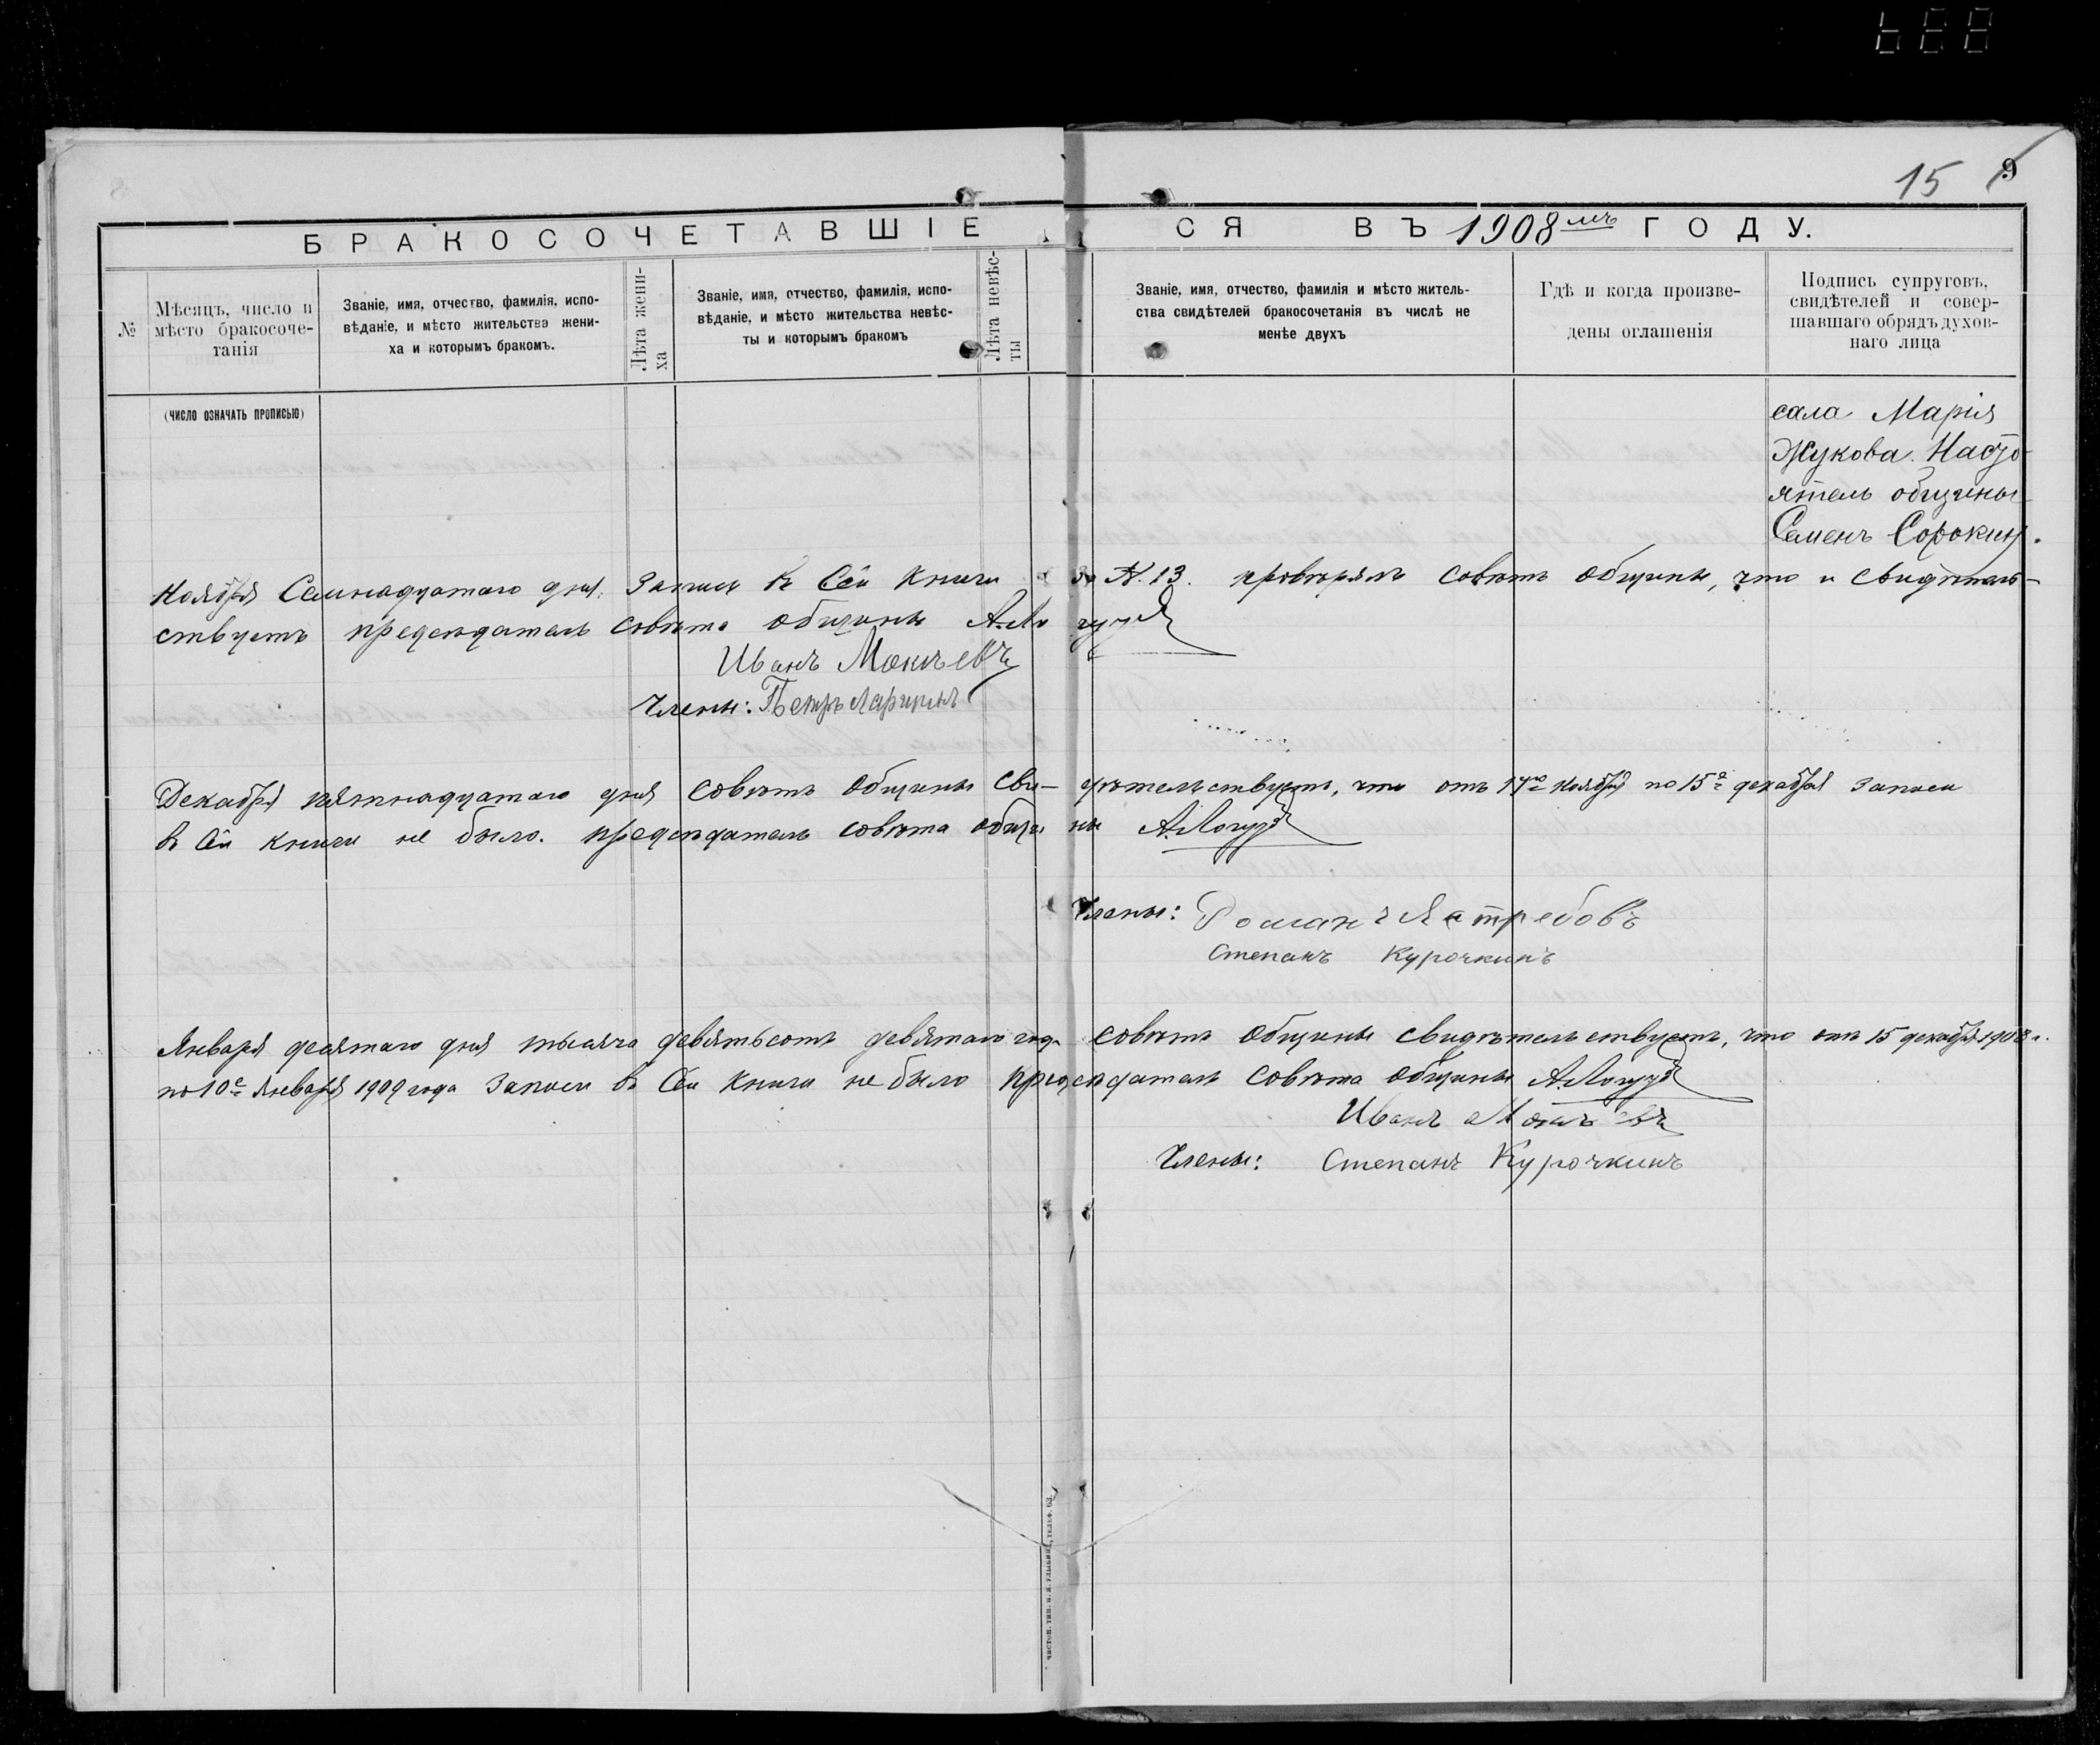 15 9
БРАКОСОЧЕТАВШІЕСЯ ВЪ 1908мъ ГОДУ.
№
Мѣсяцъ, число и
мѣсто бракосоче-
танія
Званіе, имя, отчество, фамилія, испо-
вѣданіе, и мѣсто жительства жени-
ха и которымъ бракомъ.
Лѣта жени-
ха
Званіе, имя, отчество, фамилія, испо-
вѣданіе, и мѣсто жительства невѣс-
ты и которымъ бракомъ
Лѣта невѣс-
ты
Званіе, имя, отчество, фамилія и мѣсто житель-
ства свидѣтелей бракосочетанія въ числѣ не
менѣе двухъ
Гдѣ и когда произве-
дены оглашенія
Подпись супруговъ,
свидѣтелей и совер-
шавшаго обрядъ духов-
наго лица
(ЧИСЛО ОЗНАЧАТЬ ПРОПИСЬЮ)
сала Марія
Жукова. Насто-
ятель общины
Семенъ Сорокин.
Ноября Семнадцатаго дня. Запись в Сей Книги За N. 13. провѣрялъ Совѣтъ Общины, что и Свидѣтель-
ствуетъ предсѣдатель Совѣта общины
Иванъ
Члены: Петръ Ларинъ
Декабря пятнадцатаго дня Совѣтъ Общины Сви-дѣтельствуетъ, что отъ 17го Ноября по 15е декабря Записи
в Сей Книги не было. предсѣдатель совѣта общины
Члены: Романъ Ястребовъ
Степанъ Курочкинъ
Января десятаго дня тысяча девятьсотъ девятаго года Совѣтъ Общины Свидѣтельствуетъ, что отъ 15 декабря 1908 г.
по 10е Января 1909 года Записи в Сей Книги не было предсѣдатель Совѣта Общины
Иванъ
Члены: Степанъ Курочкинъ